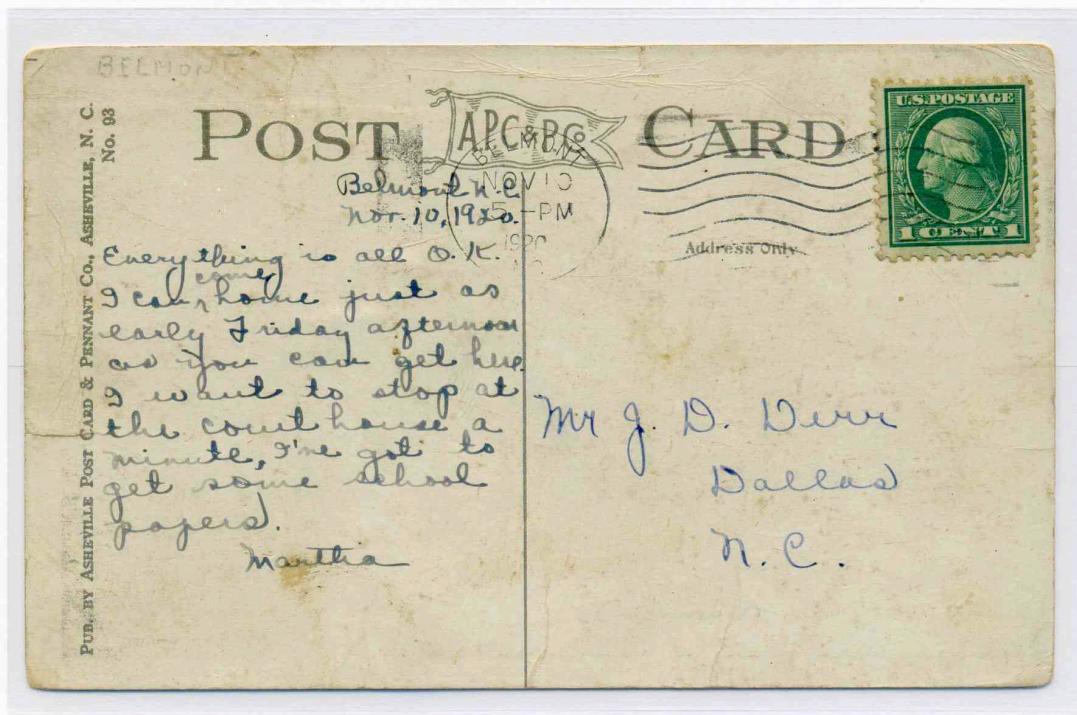 BELMONT
PUB. BY ASHEVILLE POST CARD & PENNANT CO., ASHEVILLE, N. C.
No. 93
POST CARD
A.P.C. & P. Co
BELMONT
NOV 10
5 - PM
1920
U.S. POSTAGE
1 CENT 1
Address Only
Belmont N.C.
Nov. 10, 1920.
Everything is all O.K.
I can come home just as
early Friday afternoon
as you can get here.
I want to stop at
the court house a
minute, I've got to
get some school
papers.
Martha
Mr J. D. Derr
Dallas
N. C.